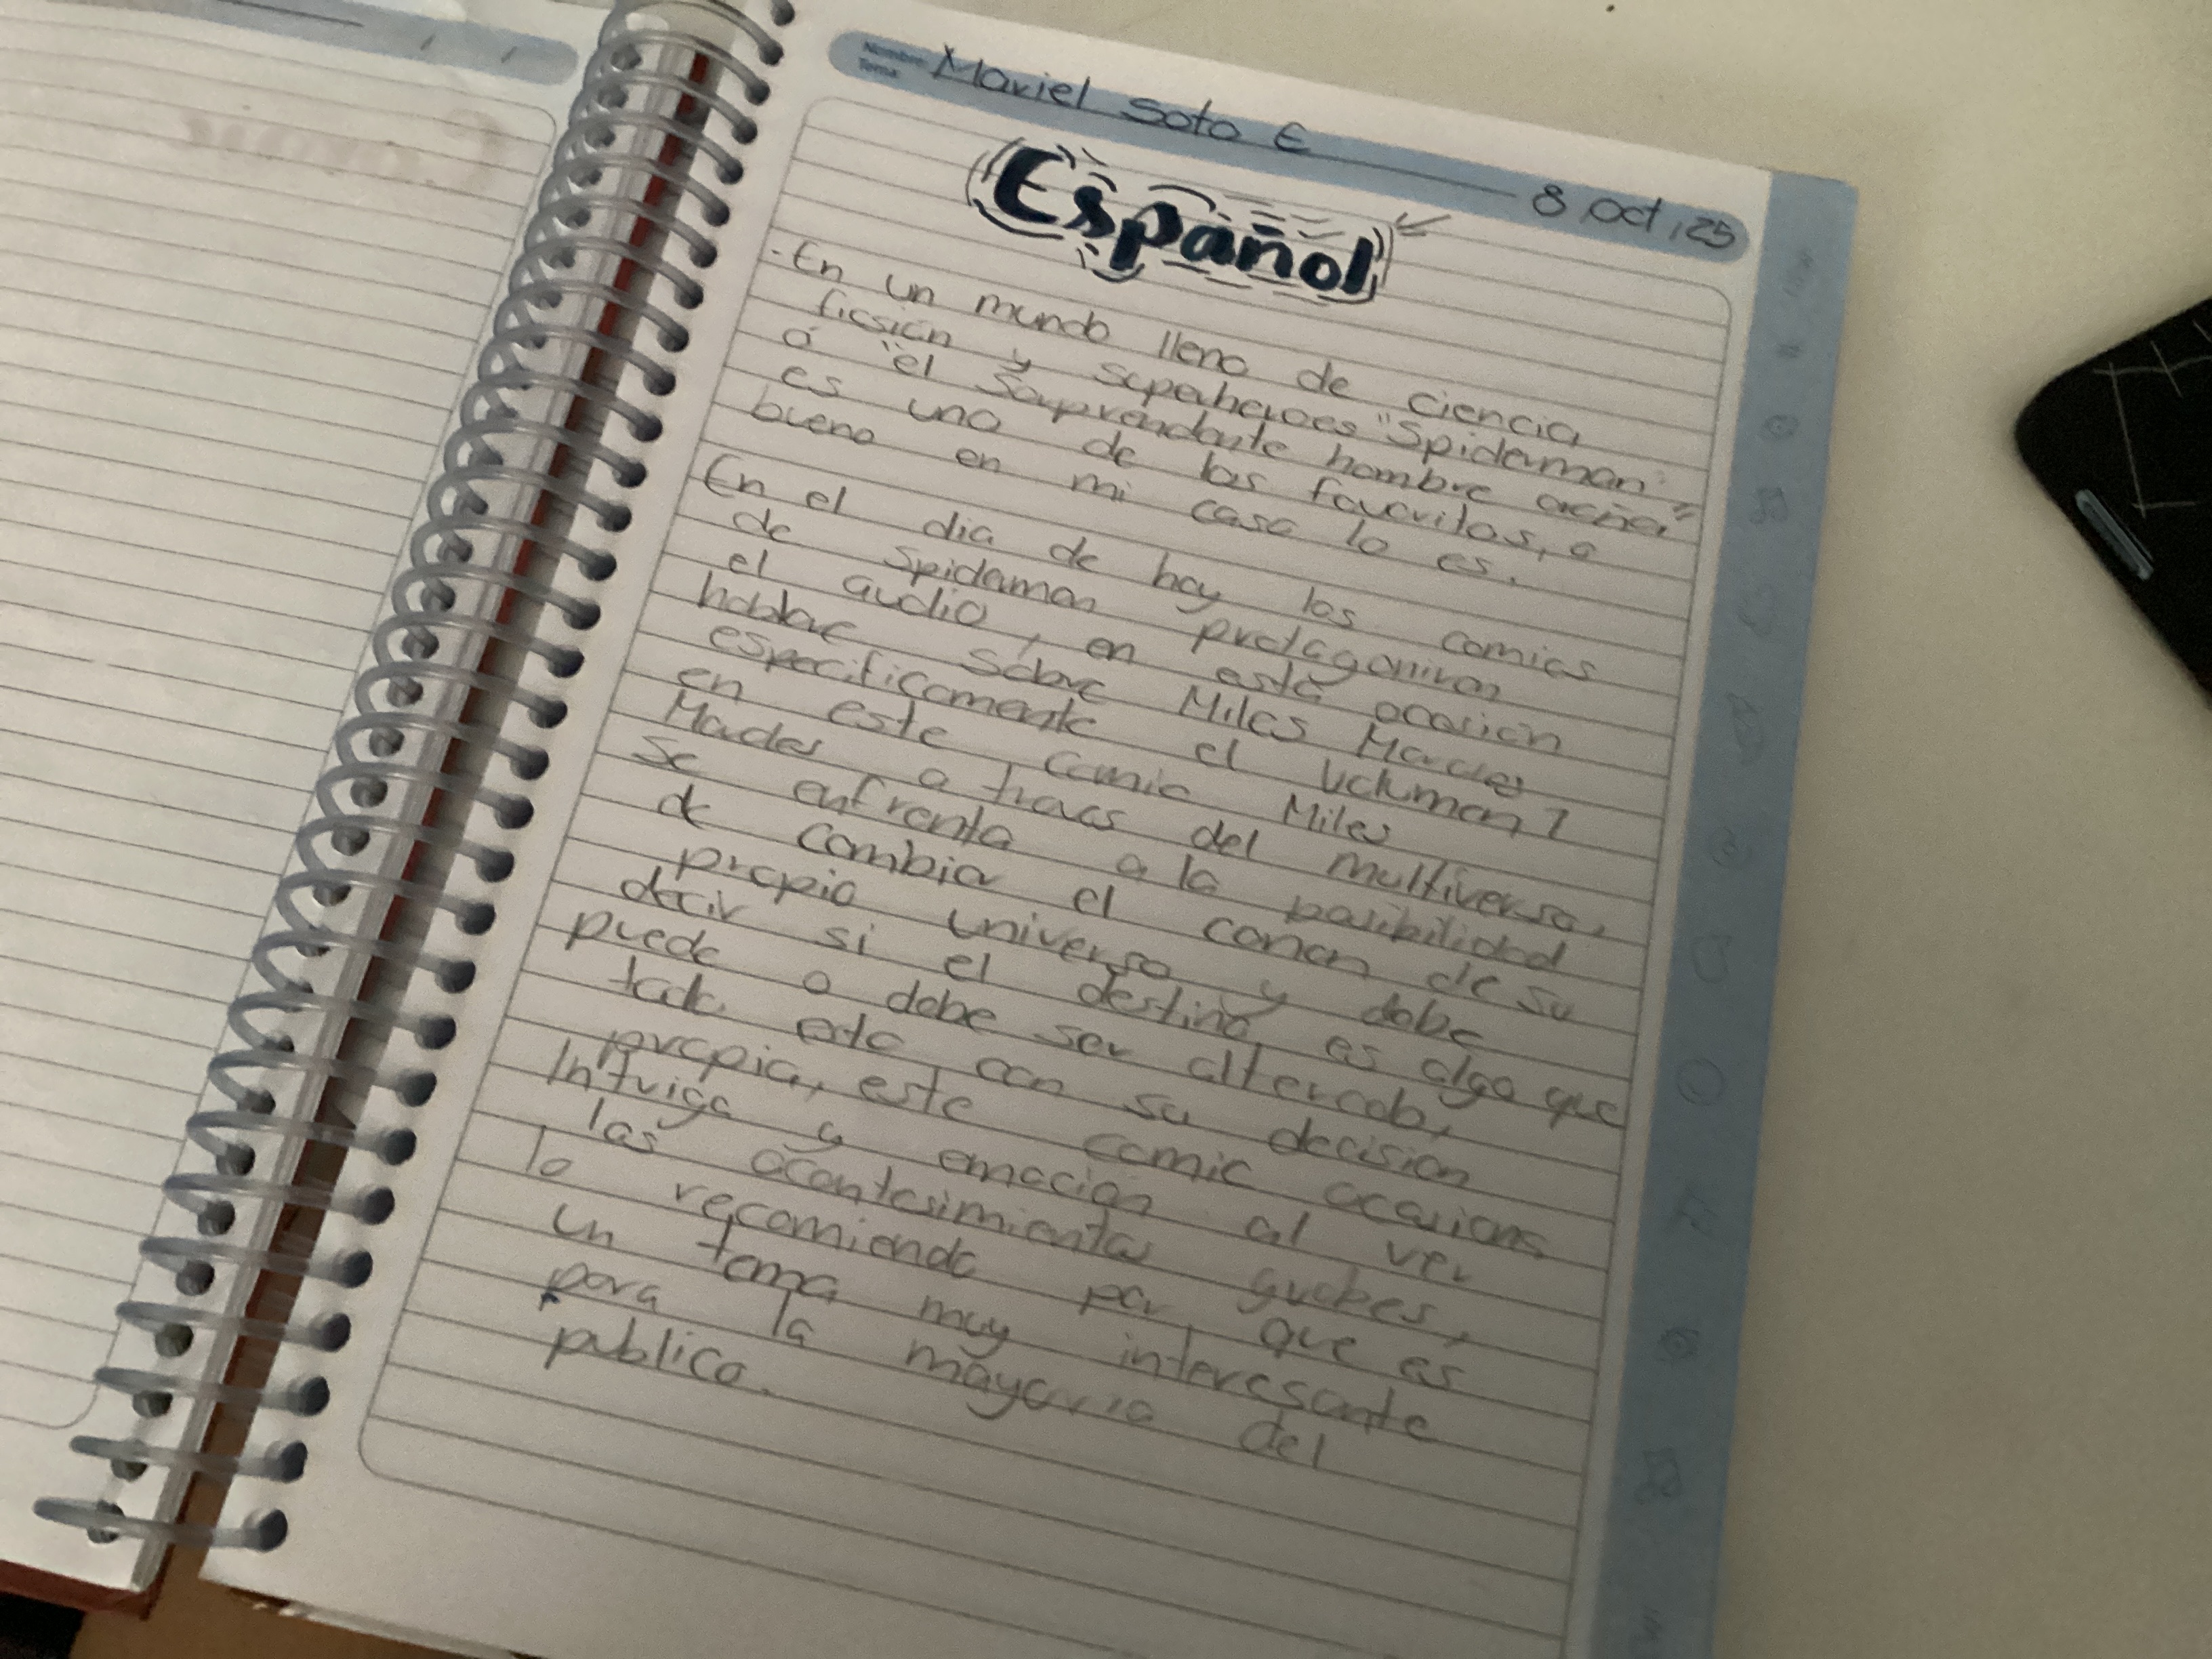 Nombre:
Tema:
Mariel Soto E
8 Oct, 25
Español
- En un mundo lleno de ciencia
ficsión y superheroes "Spiderman"
ó "el Sorprendente hombre araña"
es uno de los favoritos, o
bueno en mi casa lo es.
En el dia de hoy los comics
de Spiderman protagonizan
el audio, en esta ocasión
hablare sobre Miles Morales
especificamente el volumen 7
en este comic Miles
Morales a traves del multiverso,
se enfrenta a la posibilidad
de cambiar el canon de su
propio universo y debe
decir si el destino es algo que
puede o debe ser alterado,
todo esto con su decision
propia, este comic ocasiona
Intriga y emoción al ver
las acontesimientos
lo recomiendo por que es
un tema muy interesante
para la mayoria del
publico.